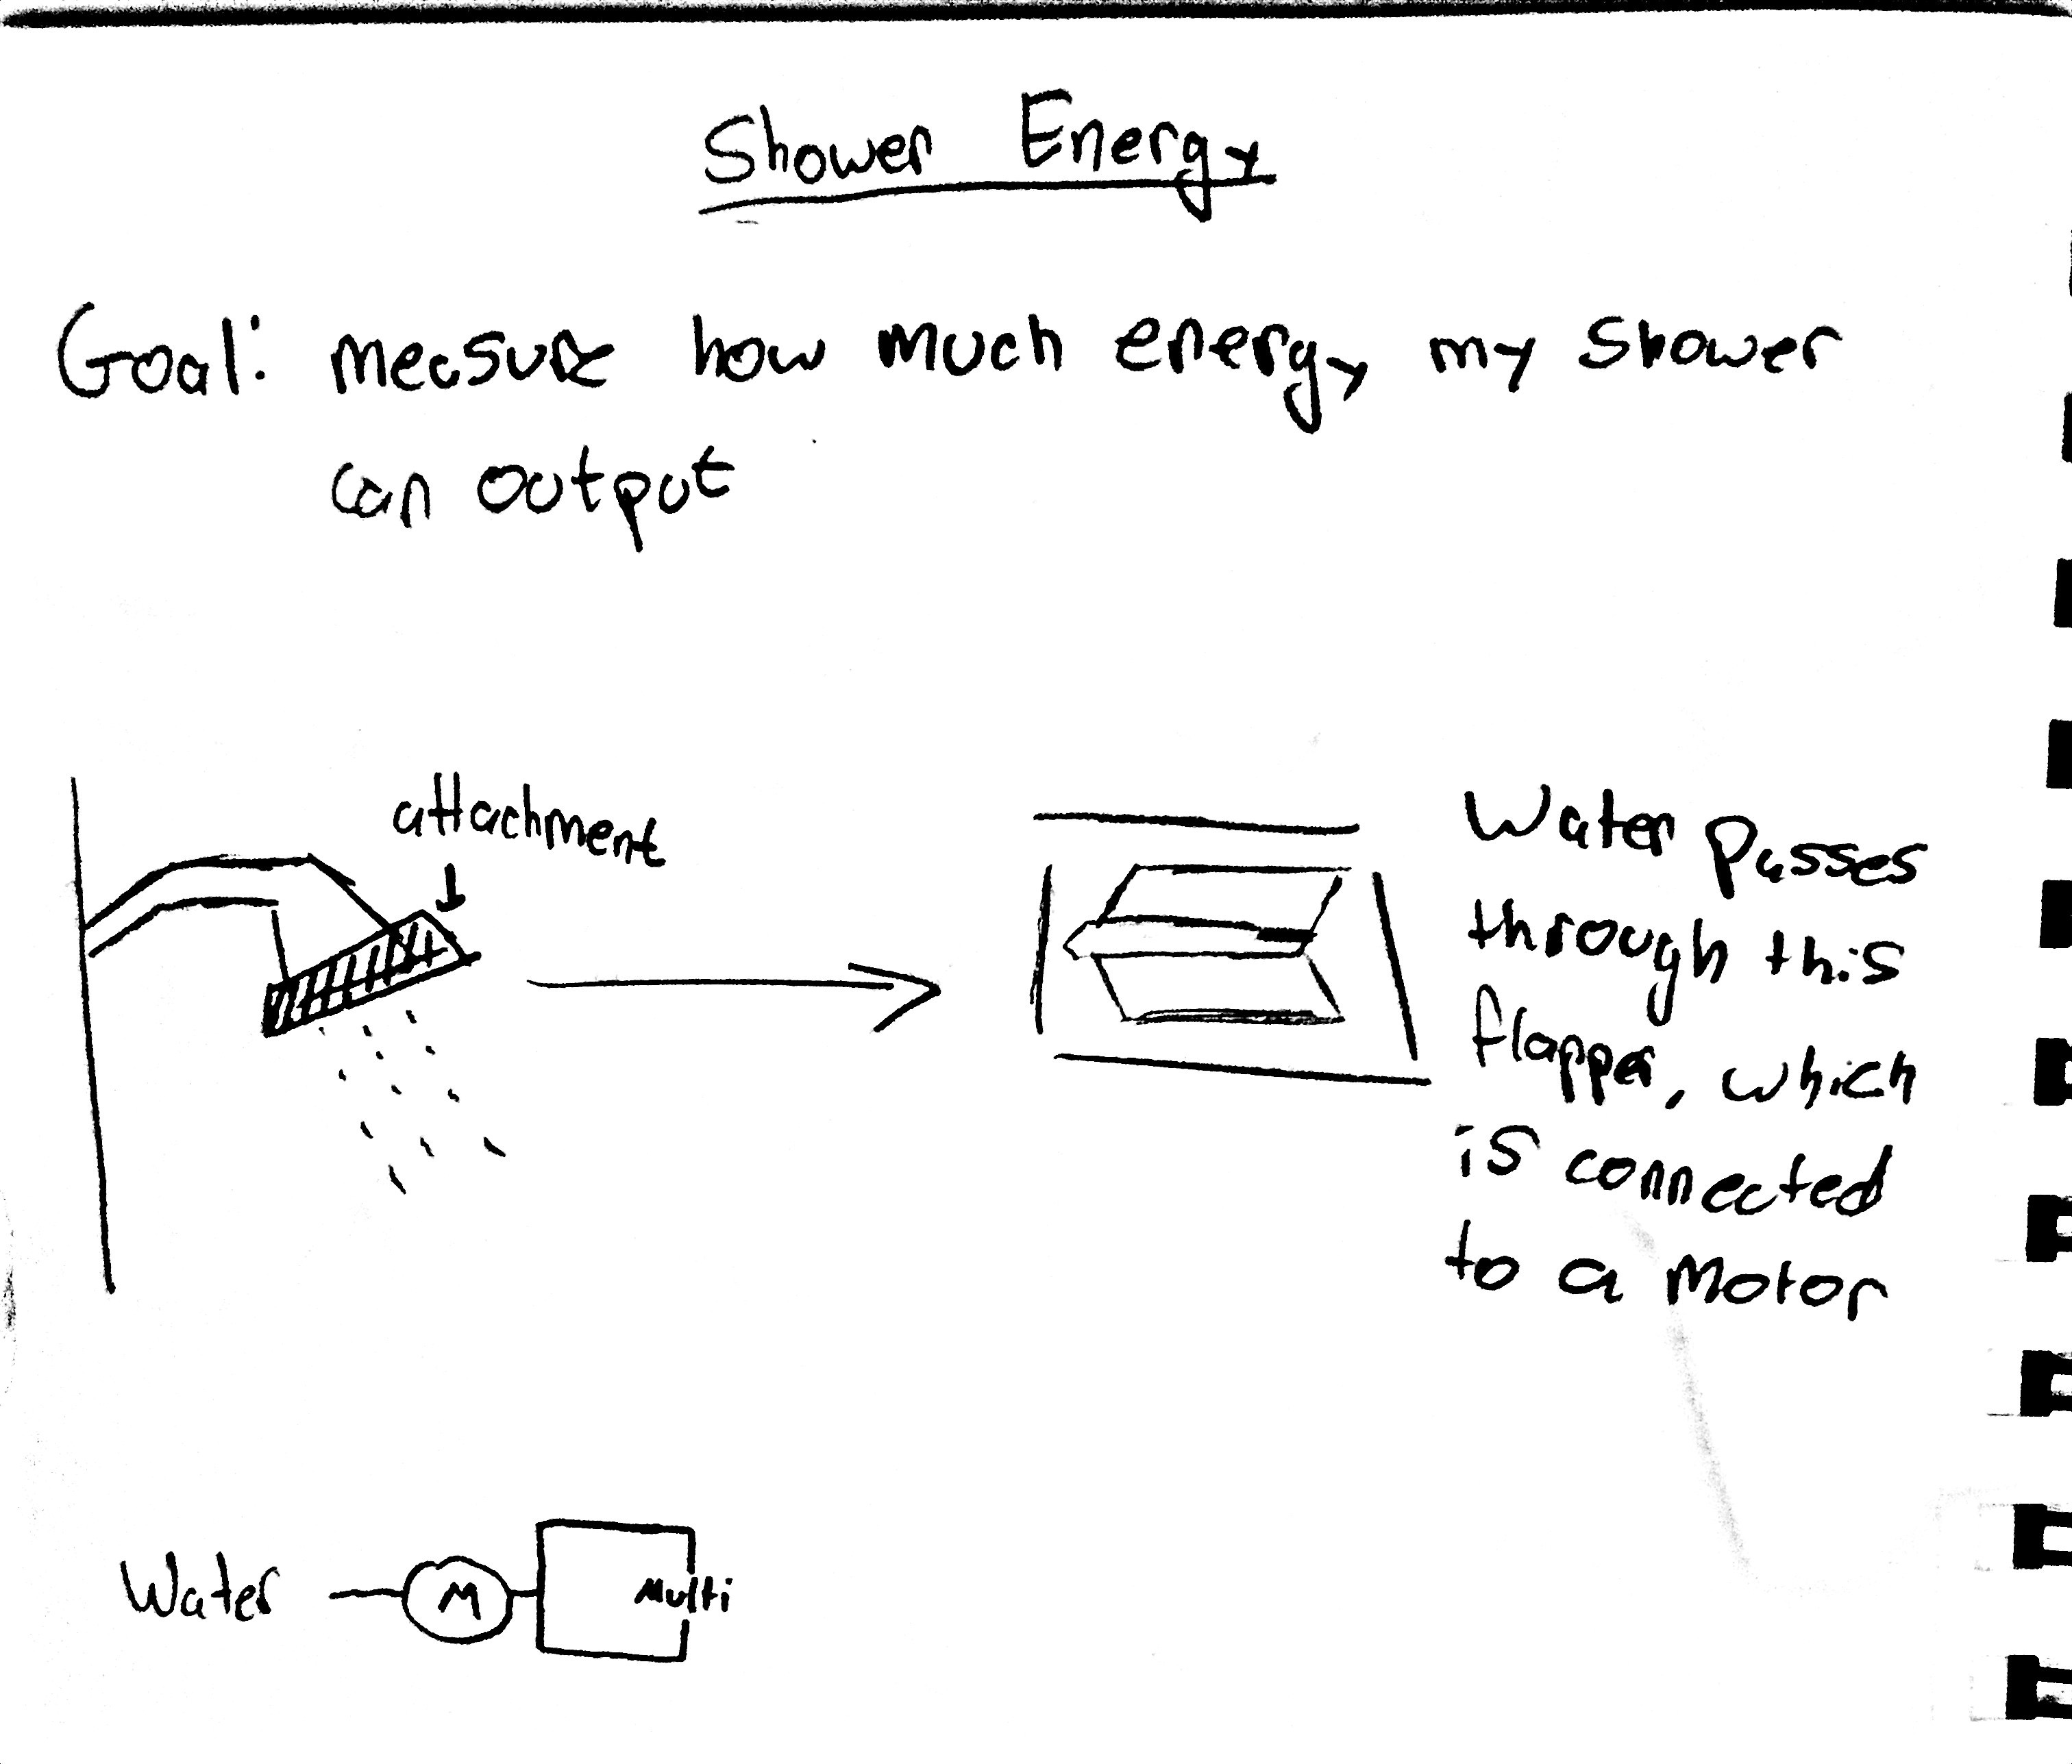 Shower Energy
Goal: measure how much energy my shower
can output
attachment
Water passes
through this
flapper, which
is connected
to a motor
Water M Multi